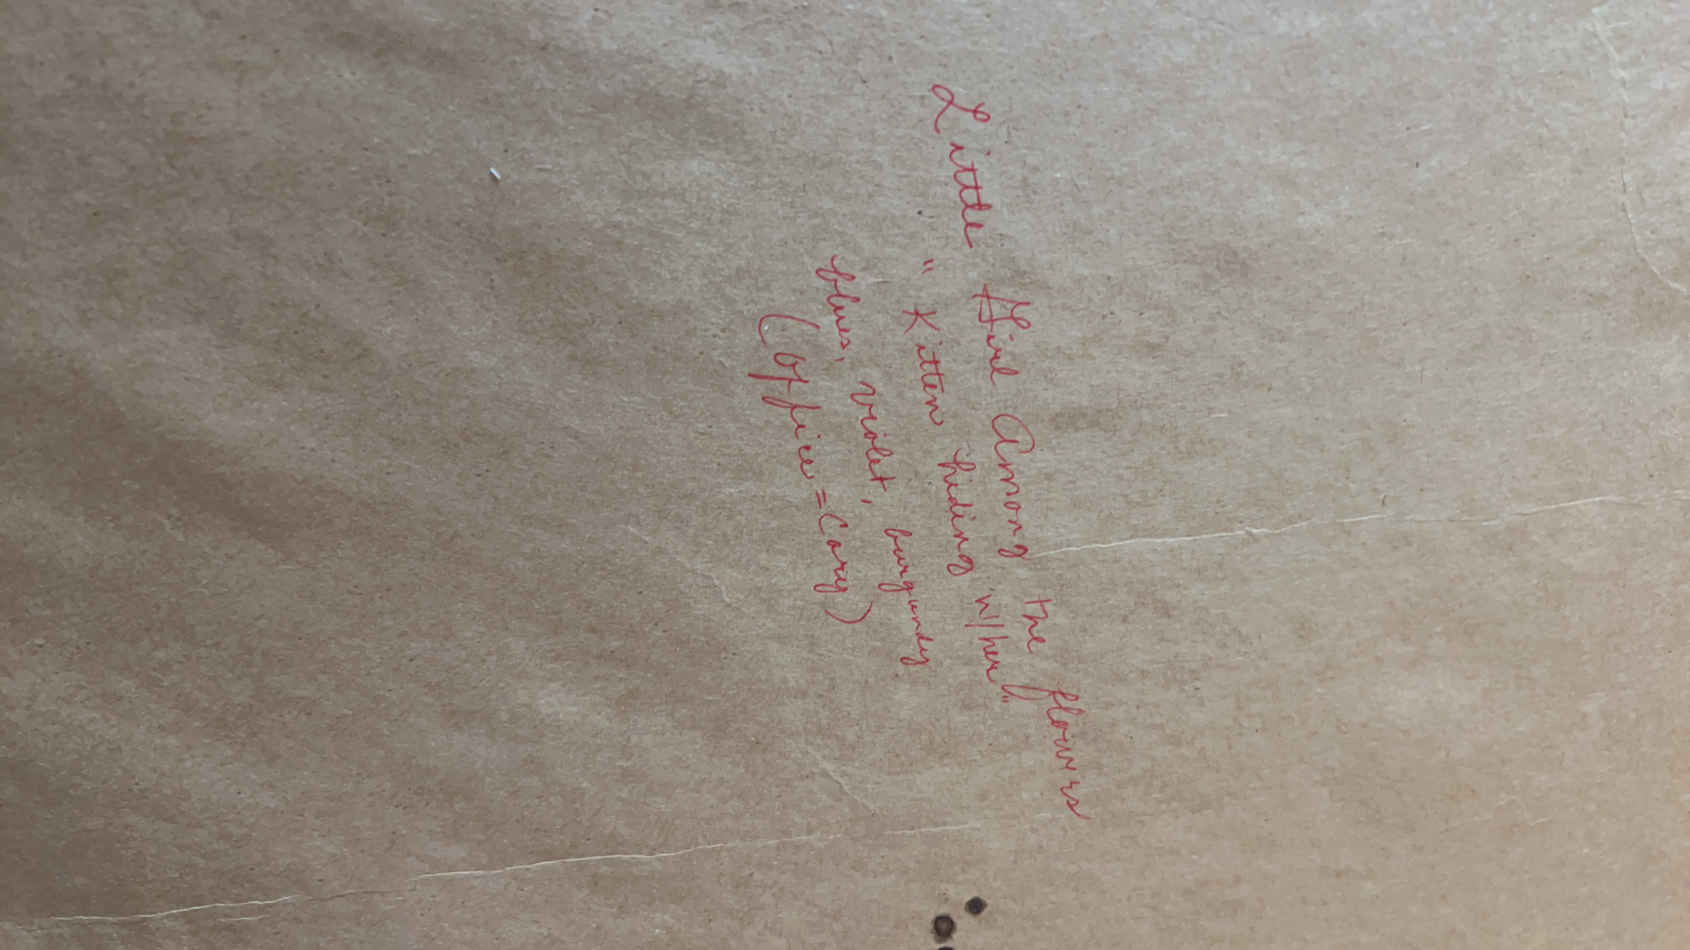 Little Girl Among the flowers
"Kitten hiding w/her"
blues, violet, burgundy
(Office = Cory)